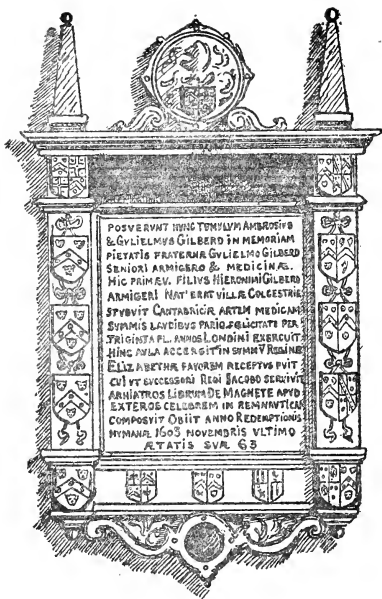 POSVERVNT HVNC TVMVLVM AMBROSIVS
& GVLIELMVS GILBERD IN MEMORIAM
PIETATIS FRATERNÆ GVLIELMO GILBERD
SENIORI ARMIGERO & MEDICINÆ.
HIC PRIMÆV. FILIVS HIERONIMI GILBERD
ARMIGERI NAT' ERAT VILLÆ COLCESTRIÆ
STVDVIT CANTABRIGIÆ ARTEM MEDICAM
SVMMIS LAVDIBVS PARIQ. FELICITATE PER
TRIGINTA PL. ANNOS LONDINI EXERCVIT
HINC AVLA ACCERSIT' IN SVMMV REGINÆ
ELIZABETHÆ FAVOREM RECEPTVS FVIT
CVI VT SVCCESSORI REGI JACOBO SERVIVIT
ARHIATROS LIBRUM DE MAGNETE APVD
EXTEROS CELEBREM IN REM NAVTICAM
COMPOSVIT OBIIT ANNO REDEMPTIONIS
HVMANÆ 1603 NOVEMBRIS VLTIMO
ÆTATIS SVÆ 63